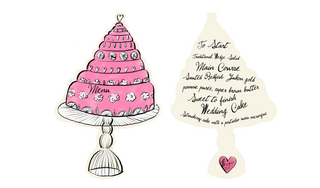 Menu
To Start
Traditional Wedge Salad
Main Course
Sautéed Redfish, Yukon gold
pomme purée, caper brown butter
Sweet to finish
Wedding Cake
cake with a